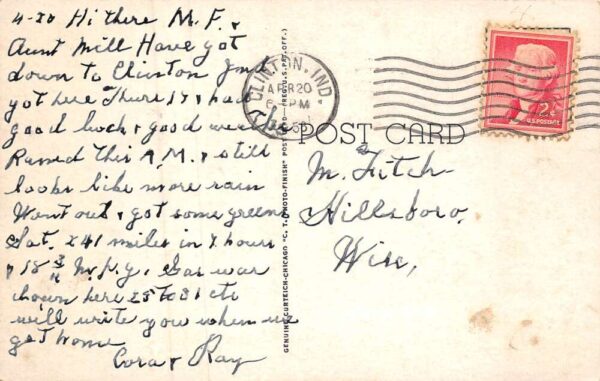 4-20 Hi there M. F. &
Aunt Mill Have got
down to Clinton Ind
got here Thurs 17 & had
good luck & good weather
Rained this A.M. & still
looks like more rain
Went out & got some greens
Sat. 241 miles in 7 hours
& 18 3/4 M.P.G. Gas war
down here 25 to 31 cts
will write you when we
get home
Cora & Ray
CLINTON, IND.
APR 20
6 PM
POST CARD
M. Fitch
Hillsboro,
Wis,
2¢
U.S. POSTAGE
GENUINE CURTEICH-CHICAGO "C. T. PHOTO-FINISH" POST CARD (REG. U.S. PAT. OFF.)